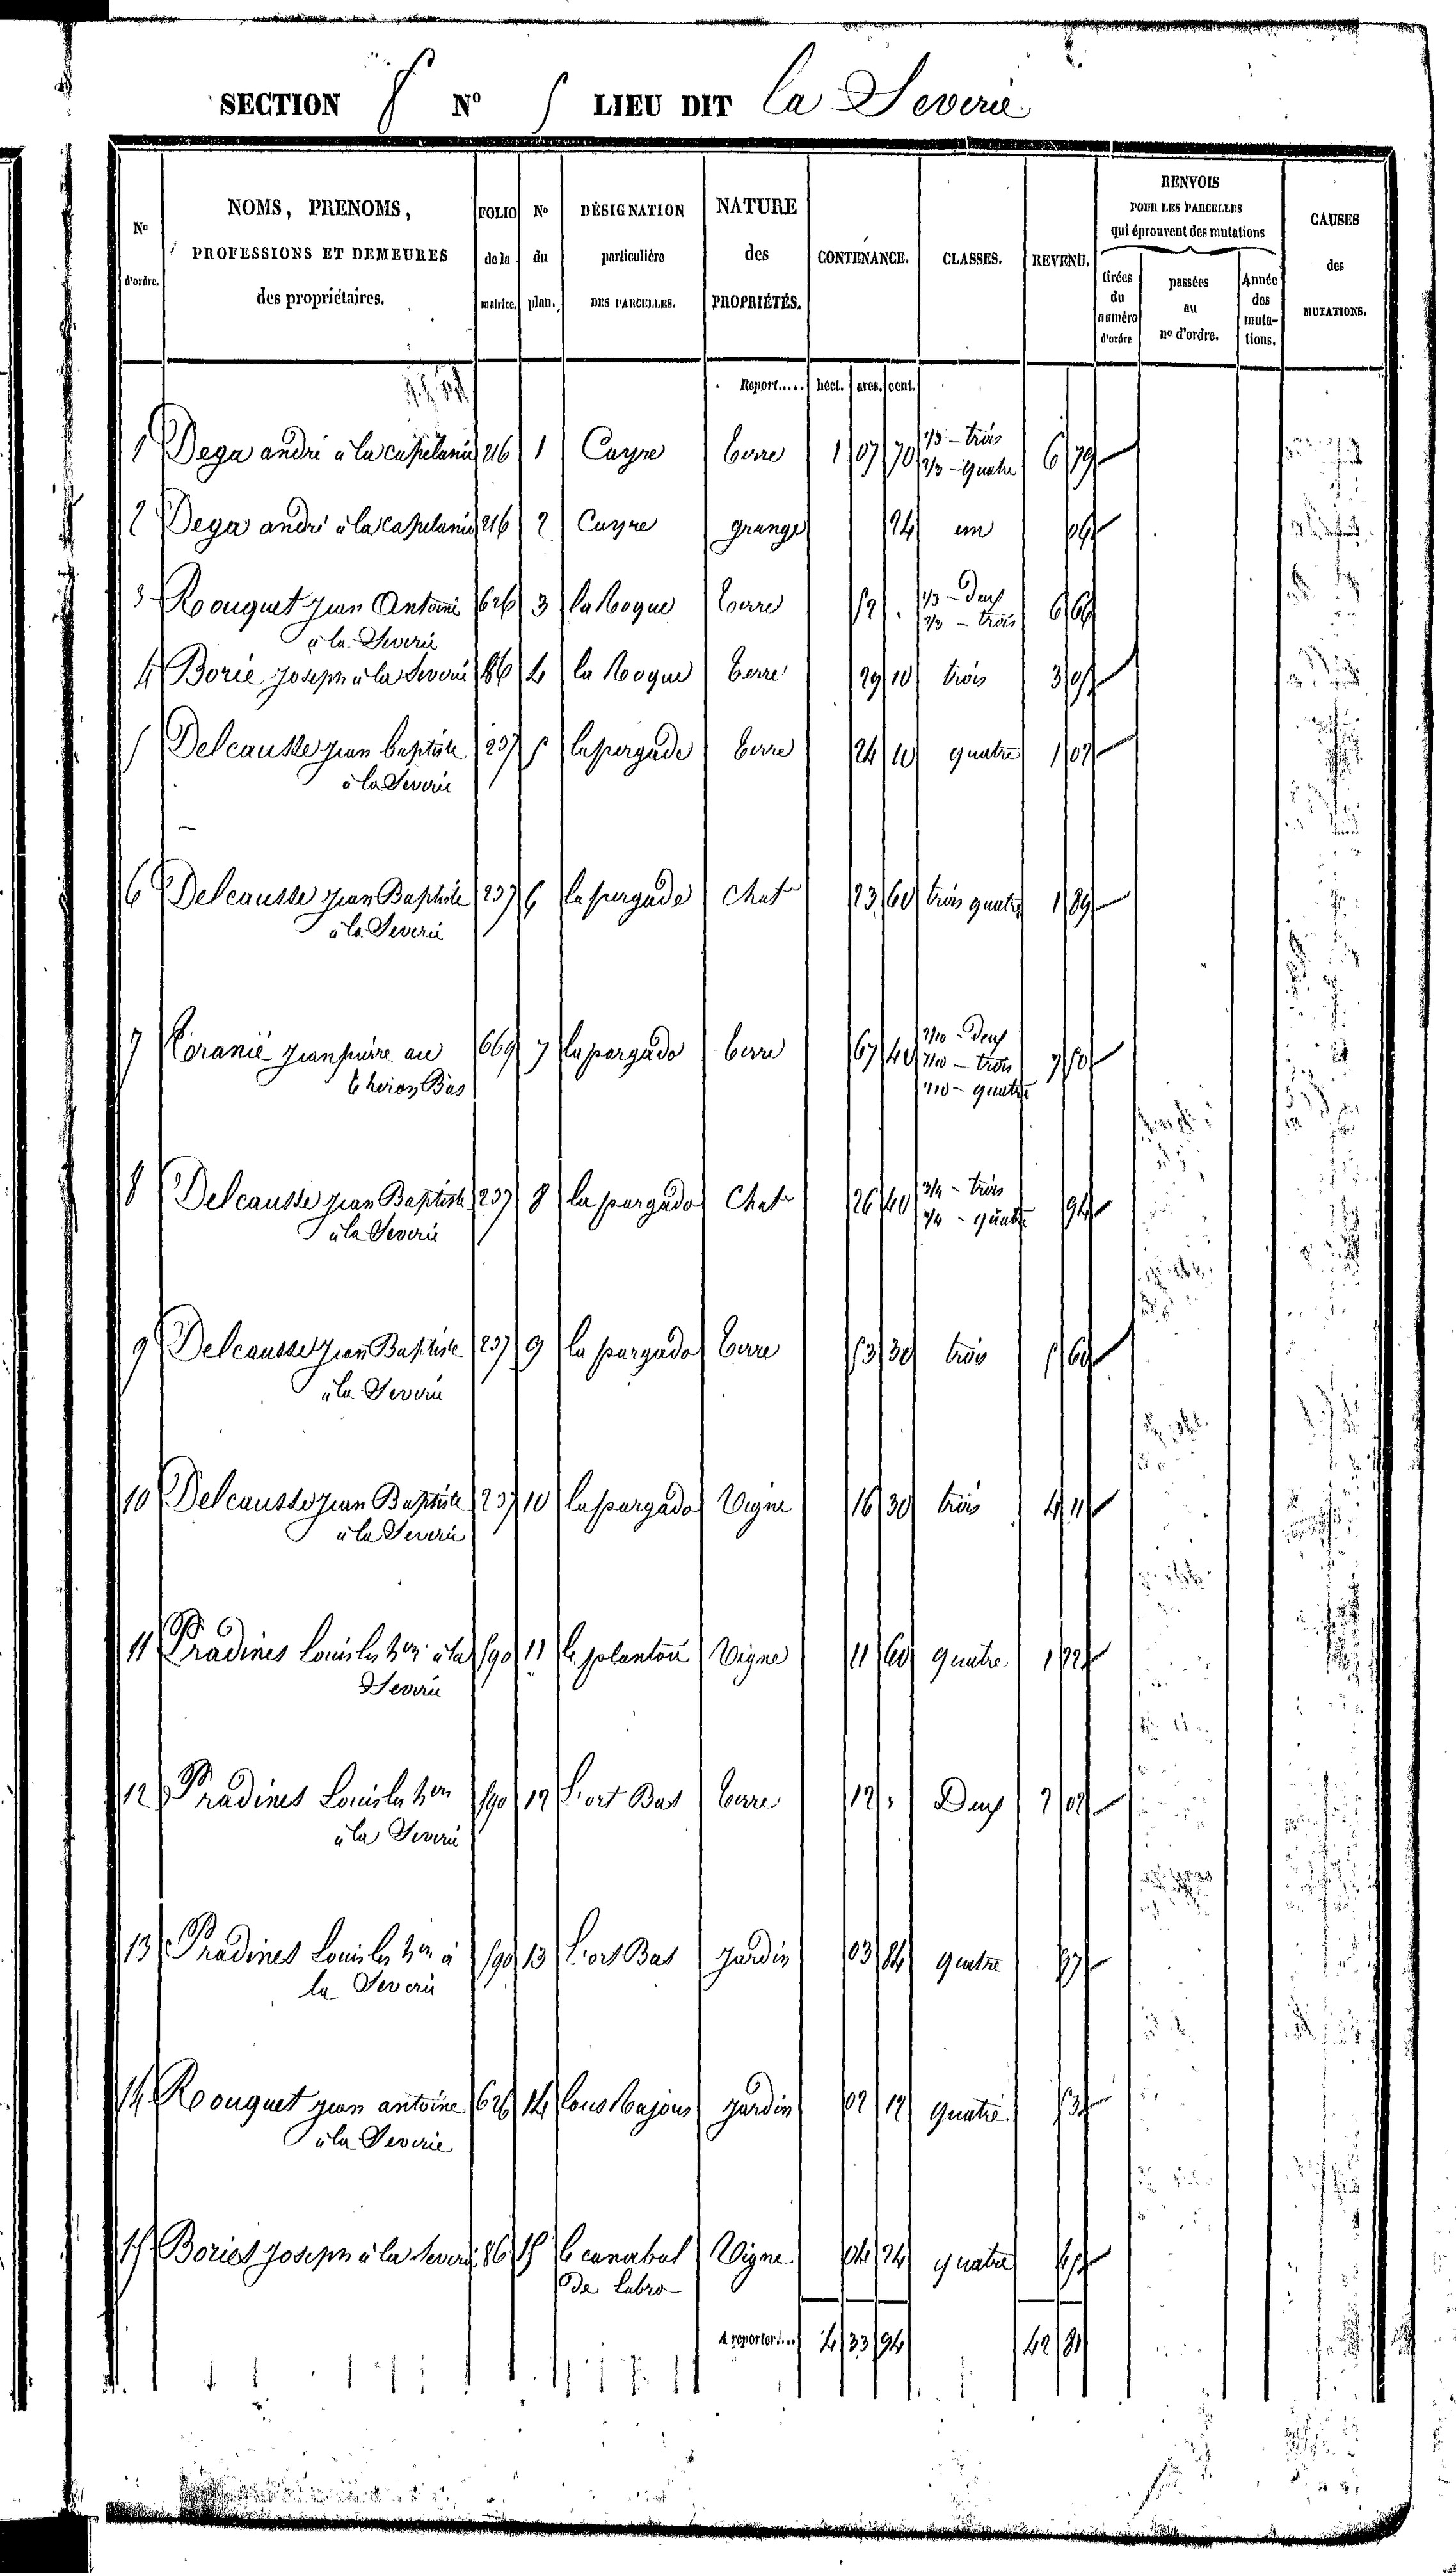 SECTION N° 5 LIEU DIT la Severie
N° d'ordre.
NOMS, PRENOMS, PROFESSIONS ET DEMEURES des propriétaires.
FOLIO de la matrice.
N° du plan.
DÉSIGNATION particulière DES PARCELLES.
NATURE des PROPRIÉTÉS.
CONTENANCE.
CLASSES.
REVENU.
RENVOIS POUR LES PARCELLES qui éprouvent des mutations
tirées du numéro d'ordre
passées au no d'ordre.
Année des muta-tions.
CAUSES des MUTATIONS.
Report..... héct. ares. cent.
1 Dega andré à la capelanie 216 1 Cayre terre 1 07 70 1/3 - trois 2/3 - quatre 6 79
2 Dega andré à la capelanie 216 2 Cayre grange 24 un
3 Rouquet jean Antoine 626 3 la Roque terre 52 . 1/3 - Deux 2/3 - trois 6 66
à la Severie
4 Borie joseph à la Severie 86 4 la Roque terre 29 10 trois 3 05
5 Delcausse jean baptiste 237 5 la pargade terre 24 10 quatre 1 02
à la Severie
6 Delcausse jean Baptiste 237 6 la pargade Chat 23 60 trois quatre 1 89
à la Severie
7 jean pierre au 669 7 la pargade terre 67 40 - Deux - trois - quatre 7 50
theron Bas
8 Delcausse jean Baptiste 237 8 la pargade Chat 26 40 3/4 - trois 1/4 - quatre 94
à la Severie
9 Delcausse jean Baptiste 237 9 la pargade terre 53 30 trois 5 60
à la Severie
10 Delcausse jean Baptiste 237 10 la pargade Vigne 16 30 trois 4 11
à la Severie
11 Pradines Louis les hers à la 590 11 Vigne 11 60 quatre 1 22
Severie
12 Pradines Louis les hers 590 12 L'ort Bas terre 12 . Deux 2 02
à la Severie
13 Pradines Louis les hers à 590 13 L'ort Bas jardin 03 84 quatre 97
la Severie
14 Rouquet jean antoine 626 14 jardin 02 12 quatre 53
à la Severie
15 Bories joseph à la Severie 86 15 le canabal Vigne 04 24 quatre 45
de Labro
A reporter.... 4 33 94 42 81